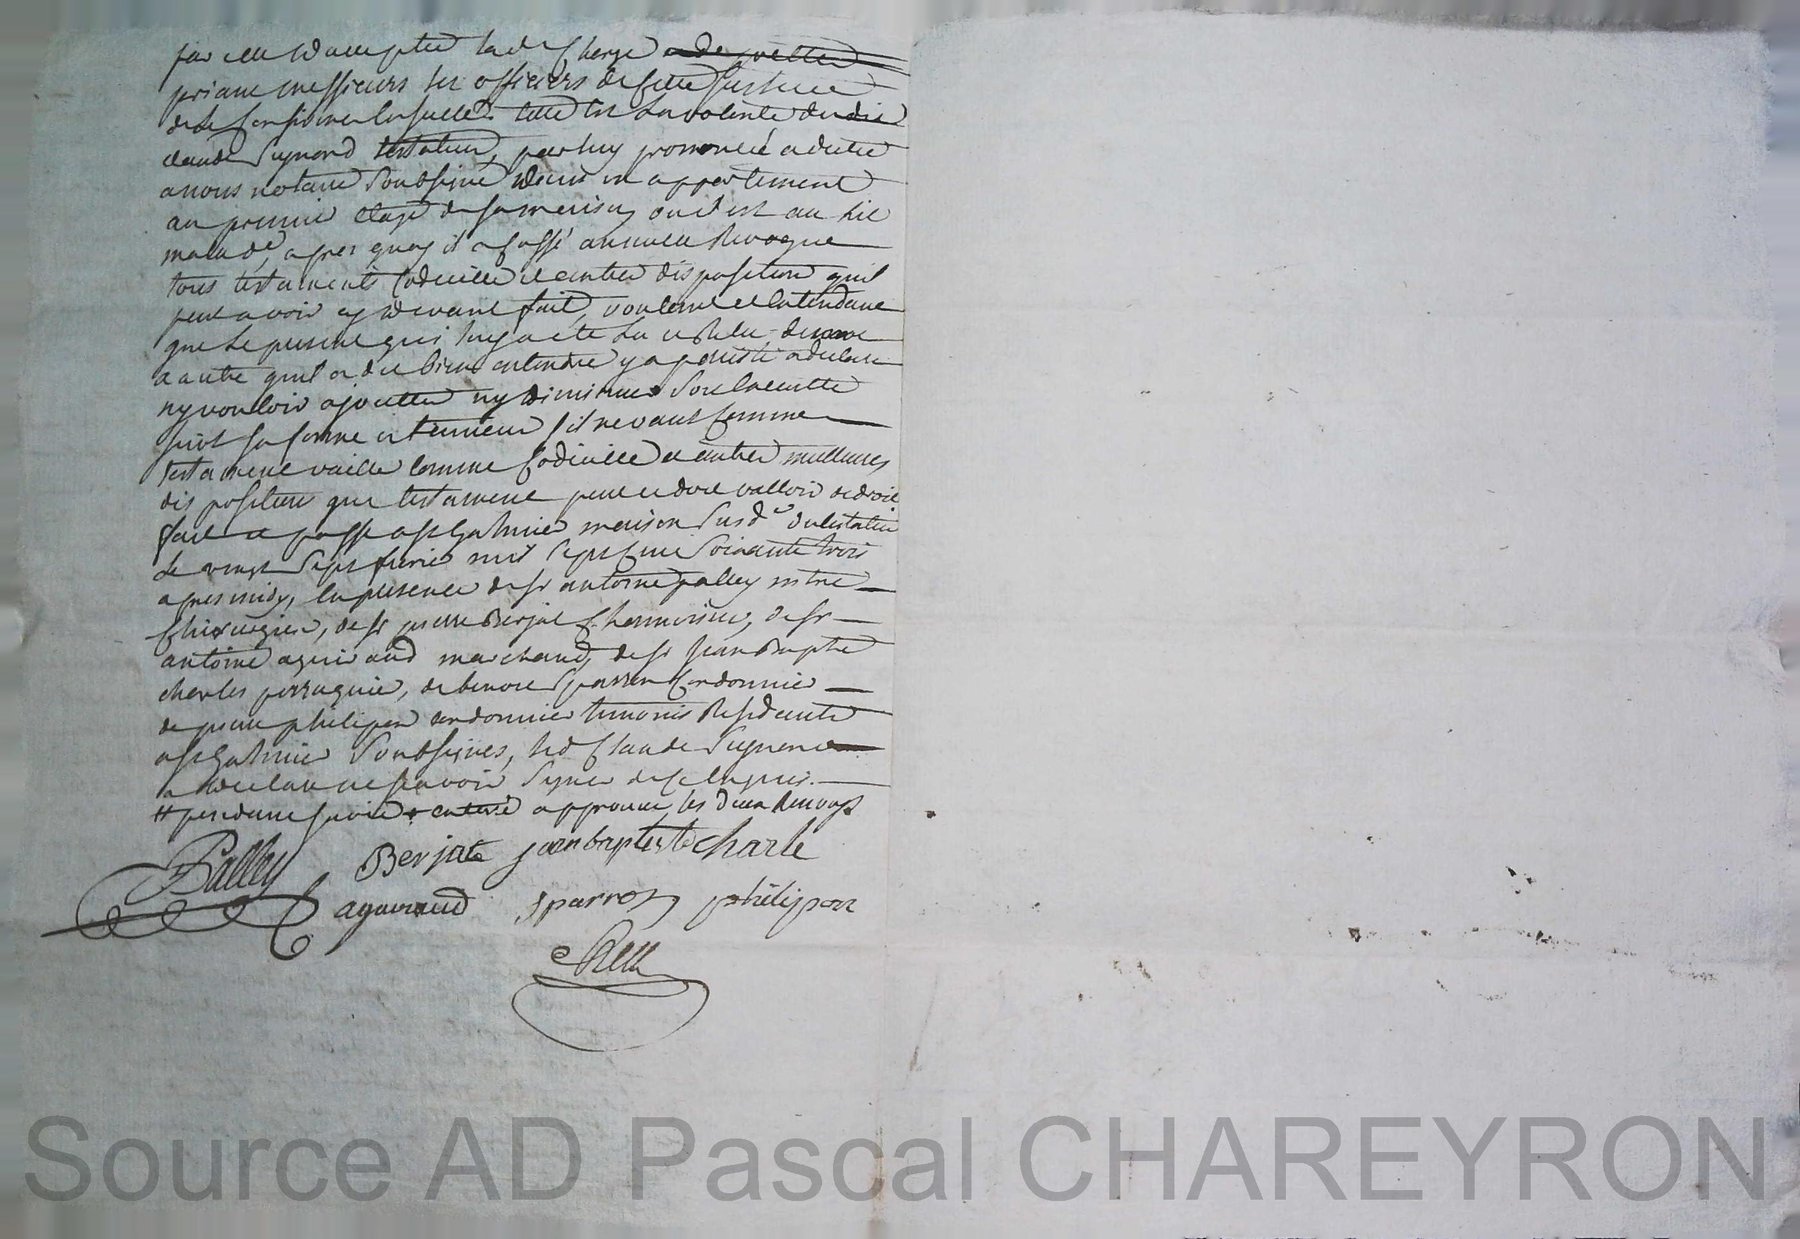 par elle d'accepter lad. charge
priant messieurs les officiers de cette justice
de le telle est la volonté dudit
claude Suynond testateur, par luy prononcée et dictée
a nous notaire soubsigné dans un appartement
au premier etage de sa maison ou il est au lit
malade, apres quoy il a cassé annullé revoqué
tous testaments codicille et autre disposition qu'il
peut avoir cy devant fait, voulant et entendant
que le present qui luy a eté lu et relu
a autre qu'il a dit bien entendre y a persisté a declaré
ny vouloir ajoutter ny diminuer
sa forme et teneur s'il ne vaut comme
testament vaille comme codicille et autre meilleures
disposition que testament peut et doit valloir de droit
fait et passé a st Galmier maison susd.e du testateur
le vingt sept fevrier mil sept cent soixante trois
apres midy, en presence de sr antoine palley mtre
chirurgien, de sr pierre Berjat chamoiseur, de sr
antoine aguiraud marchand, de sr jean Baptte
charles perruquier, de benoit sparron cordonnier
de pierre philipon cordonnier temoins residants
a st Galmier soubsignés, led. Claude Suynond
a declaré ne scavoir signer de ce enquis.
# pendant sa vie approuvé les deux renvoys
Palley Berjat jean baptiste charle
aguiraud sparron philipon